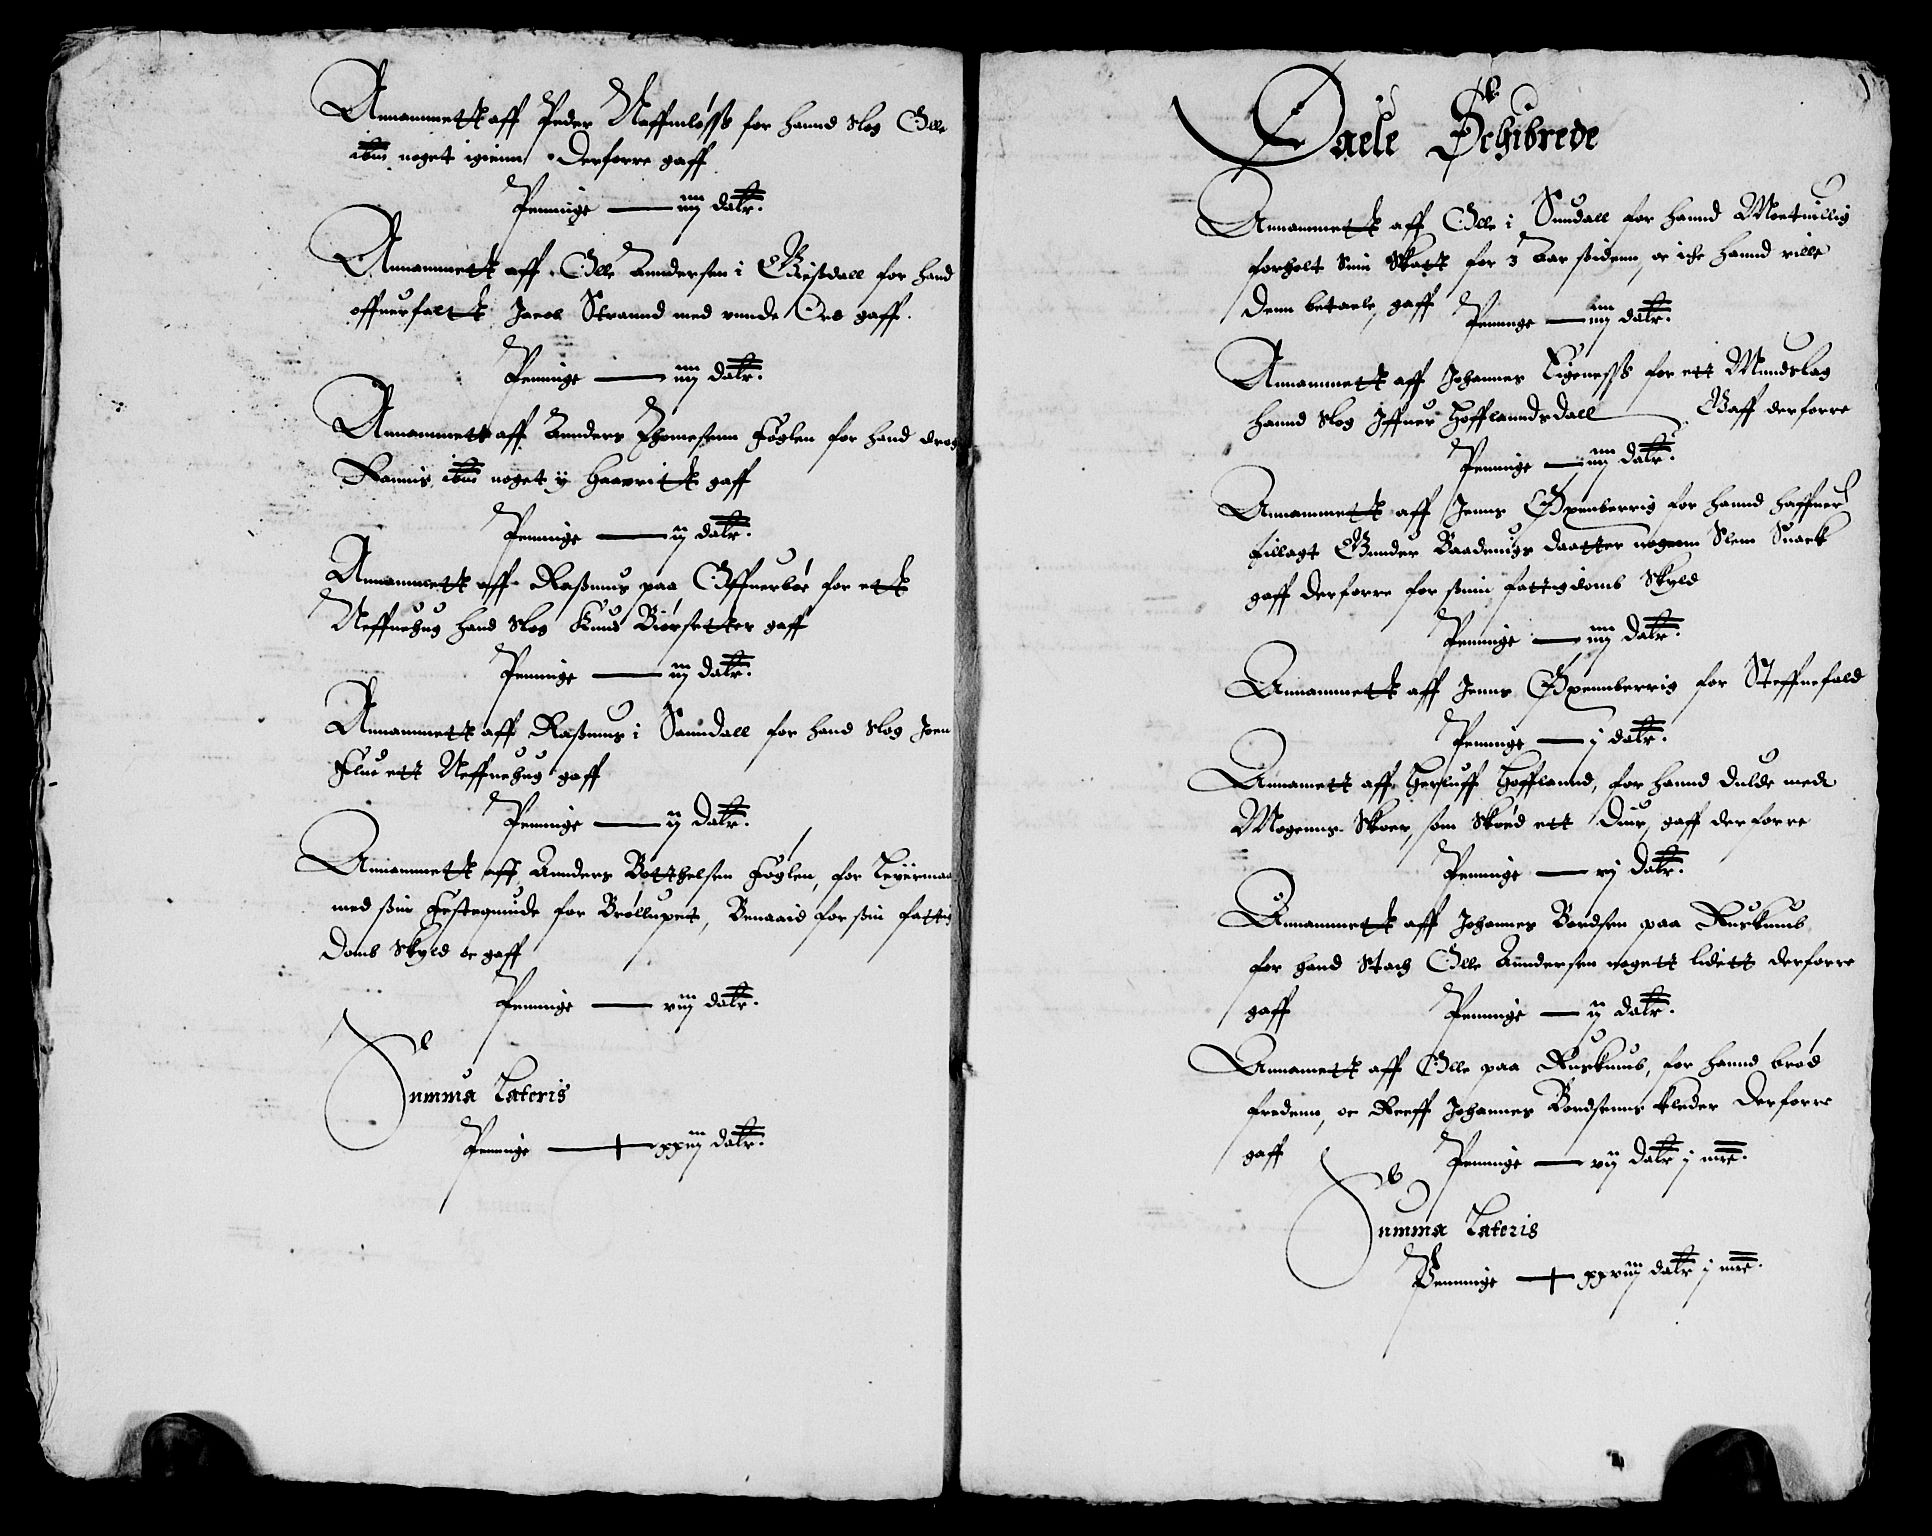 Annammett aff Peder Neffueløss for hannd slog Olle
ibm noget igienn. Derforre gaff
Penninge — iiij dalr.
Annammett aff Olle Anndersen i Giesdall for hand
offuerfaltt Jacob Strannd med vnnde Ord gaff.
Penninge — iiij dalr.
Annammett aff Annders Thomesenn Foglen for hand drog
Rannis ibm noget y Haarritt gaff
Penninge — ij dalr.
Annammett aff Rasmus paa Offuerbøe for ett
Neffuehug hand slog Knud Biørsetter gaff
Penninge — iij dalr.
Annammett aff Rasmus i Sanndall for hand slog Joen
Flue ett Neffuehug gaff
Penninge — ij dalr.
Annammett aff Annders Botthelsen Foglen, for Leyermaa
med siin Festequinde for Brøllupet, Benaaid for siin fattig
domb skyld oc gaff
Penninge — viij dalr.
Summa Lateris
Penninge — xxiij dalr.
Daele Schibrede
Annammett aff Olle i Sundall for hannd Moetuillig
forholt sinn Skatt for 3 Aar sidenn, oc icke hannd ville
denn betaele, gaff Penninge — iiij dalr.
Annammett aff Johannes Eigeness for ett Mundslag
hannd slog Iffuer Hofflanndsdall Gaff derforre
Penninge — iiij dalr.
Annammett aff Jenns Øxenberrig for hannd haffuer
tillagt Gunder Baadnuigs daatter nogenn Slem Snack
gaff derforre for siinn fattigdomb skyld
Penninge — iiij dalr.
Annammett aff Jenns Øxennberrig for Steffnefald
Penninge — j dalr.
Annamett aff Herluff Hofflannd, for hannd dulde med
Mogenns Skoer, som Skøed ett Diur, gaff derforre
Penninge — vj dalr.
Annammett aff Johannes Bordsen paa Rusknub
for hand stach Olle Anndersen nogett lidett derforre
gaff Penninge — ij dalr.
Annamett aff Olle paa Rusknub, for hannd brød
fredenn, oc Reeff Johannes Bordsenns kleder Derforre
gaff Penninge — vij dalr j mrc.
Summa Lateris
Penninge — xxviij dalr j mrc.